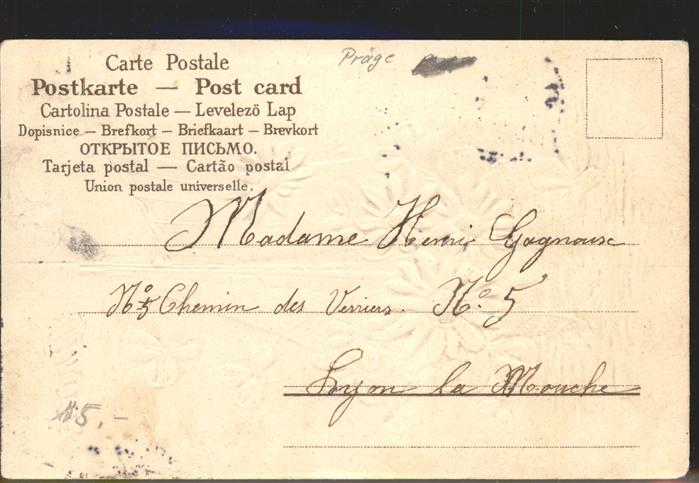 Carte Postale
Präge
Postkarte — Post card
Cartolina Postale — Levelezö Lap
Dopisnice — Brefkort — Briefkaart — Brevkort
ОТКРЫТОЕ ПИСЬМО.
Tarjeta postal — Cartão postal
Union postale universelle.
Madame Henri Gagnoux
No 5 Chemin des Verriers. No. 5
Lyon la Mouche
5,-